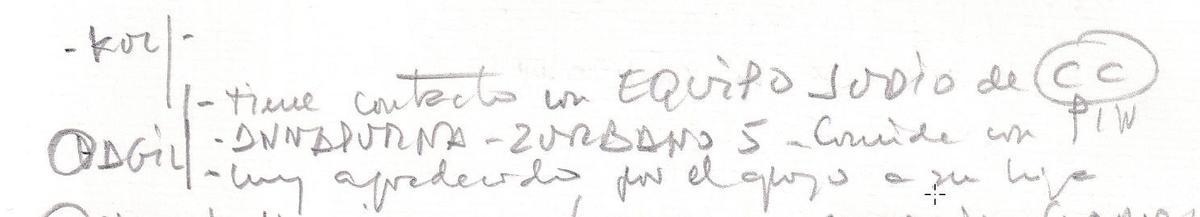 - KOL -
- tiene contacto con EQUIPO JUDIO de CC
- ANNAPURNA - ZURBANO 5 - Comida con PIW
DAGIL - muy agradecido por el apoyo a su hija